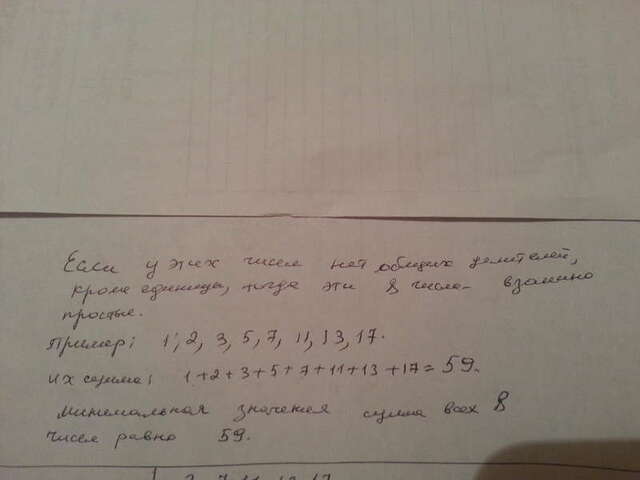 Если у этих чисел нет общих делителей,
кроме единицы, тогда эти 8 числа- взаимно
простые.
Пример: 1, 2, 3, 5, 7, 11, 13, 17.
их сумма: 1+2+3+5+7+11+13+17=59.
минимальная значения сумма всех 8
чисел равно 59.